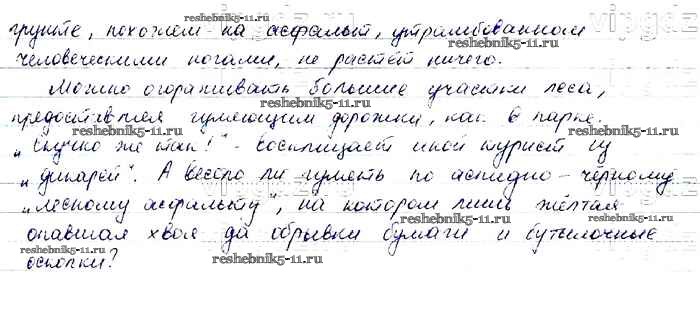 грунте, похожем на асфальт, утрамбованном
человеческими ногами, не растёт ничего.
Можно огораживать большие участки леса,
предоставляя гуляющим дорожки, как в парке.
„Скучно же так!" - восклицает иной турист из
„дикарей". А весело ли гулять по аспидно-чёрному
„лесному асфальту", на котором лишь жёлтая
опавшая хвоя да обрывки бумаги и бутылочные
осколки?
reshebnik5-11.ru
reshebnik5-11.ru
reshebnik5-11.ru
reshebnik5-11.ru
reshebnik5-11.ru
reshebnik5-11.ru
reshebnik5-11.ru
reshebnik5-11.ru
reshebnik5-11.ru
reshebnik5-11.ru
reshebnik5-11.ru
vipgdz